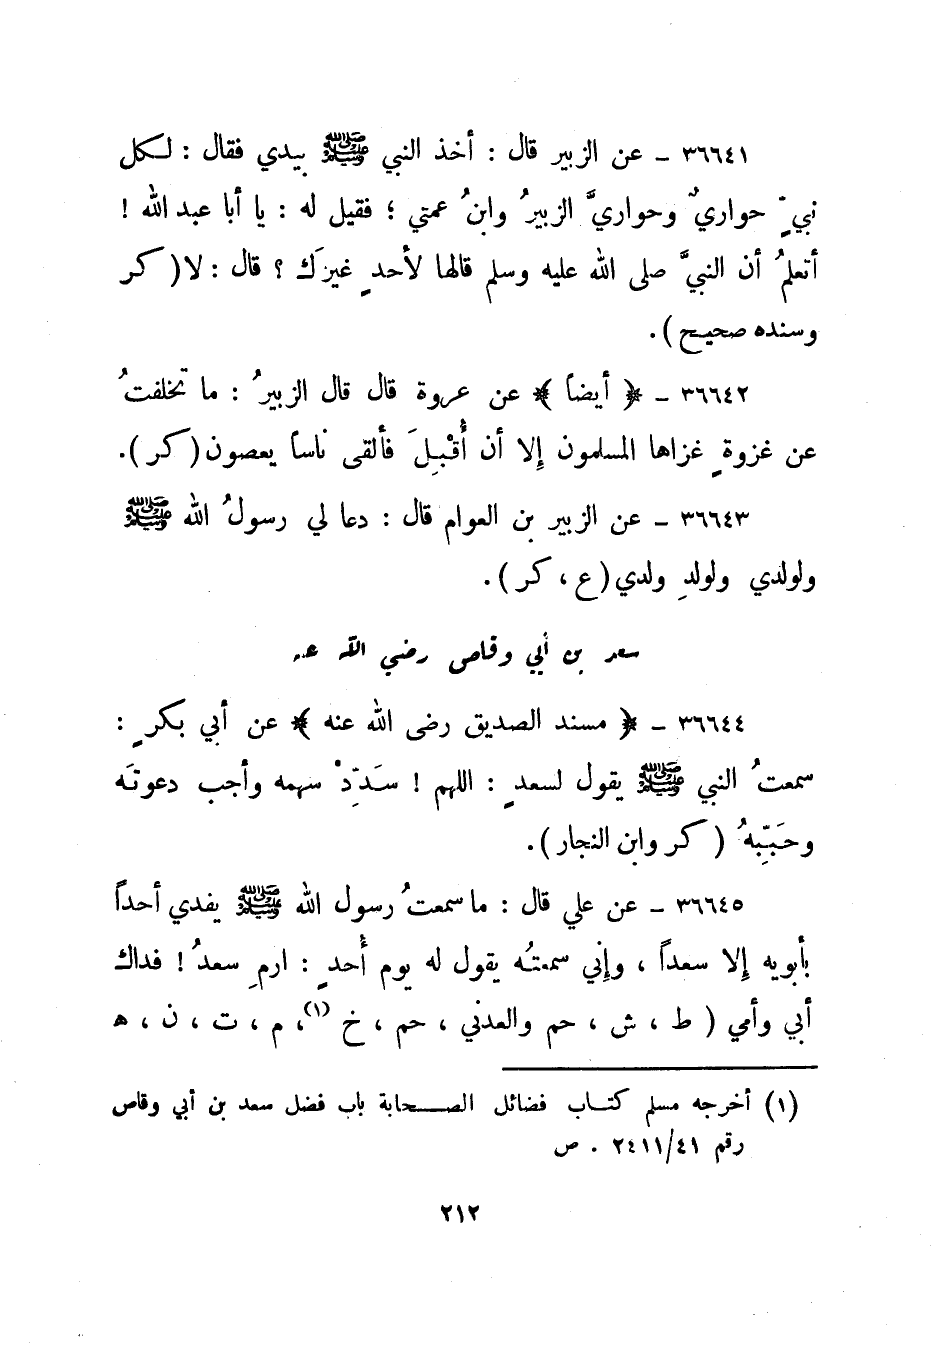 ٣٦٦٤١ - عن الزبير قال : أخذ النبي ﷺ بيدي فقال : لكل
نبيٍّ حواريٌ وحواريَّ الزبيرُ وابنُ عمتي ؛ فقيل له : يا أبا عبد الله !
أتعلمُ أن النبيَّ صلى الله عليه وسلم قالها لأحدٍ غيرَك ؟ قال : لا ( كر
وسنده صحيح ) .
٣٦٦٤٢ - ﴿ أيضاً ﴾ عن عروة قال قال الزبيرُ : ما تخلفتُ
عن غزوةٍ غزاها المسلمون إلا أن أُقْبِلَ فألقى ناساً يعصون ( كر ) .
٣٦٦٤٣ - عن الزبير بن العوام قال : دعا لي رسولُ الله ﷺ
ولولدي ولولدِ ولدي ( ع ، كر ) .
سعد بن أبي وقاص رضي الله عنه
٣٦٦٤٤ - ﴿ مسند الصديق رضى الله عنه ﴾ عن أبي بكرٍ :
سمعتُ النبي ﷺ يقول لسعدٍ : اللهم ! سَدِّدْ سهمه وأجب دعوتَه
وحَبِّبهُ ( كر وابن النجار ) .
٣٦٦٤٥ - عن علي قال : ما سمعتُ رسول الله ﷺ يفدي أحداً
بأبويه إلا سعداً ، وإني سمعتُه يقول له يوم أُحدٍ : ارمِ سعدُ ! فداك
أبي وأمي ( ط ، ش ، حم والعدني ، حم ، خ (١) ، م ، ت ، ن ، ه
(١) أخرجه مسلم كتاب فضائل الصحابة باب فضل سعد بن أبي وقاص
رقم ٢٤١١/٤١ . ص
٢١٢